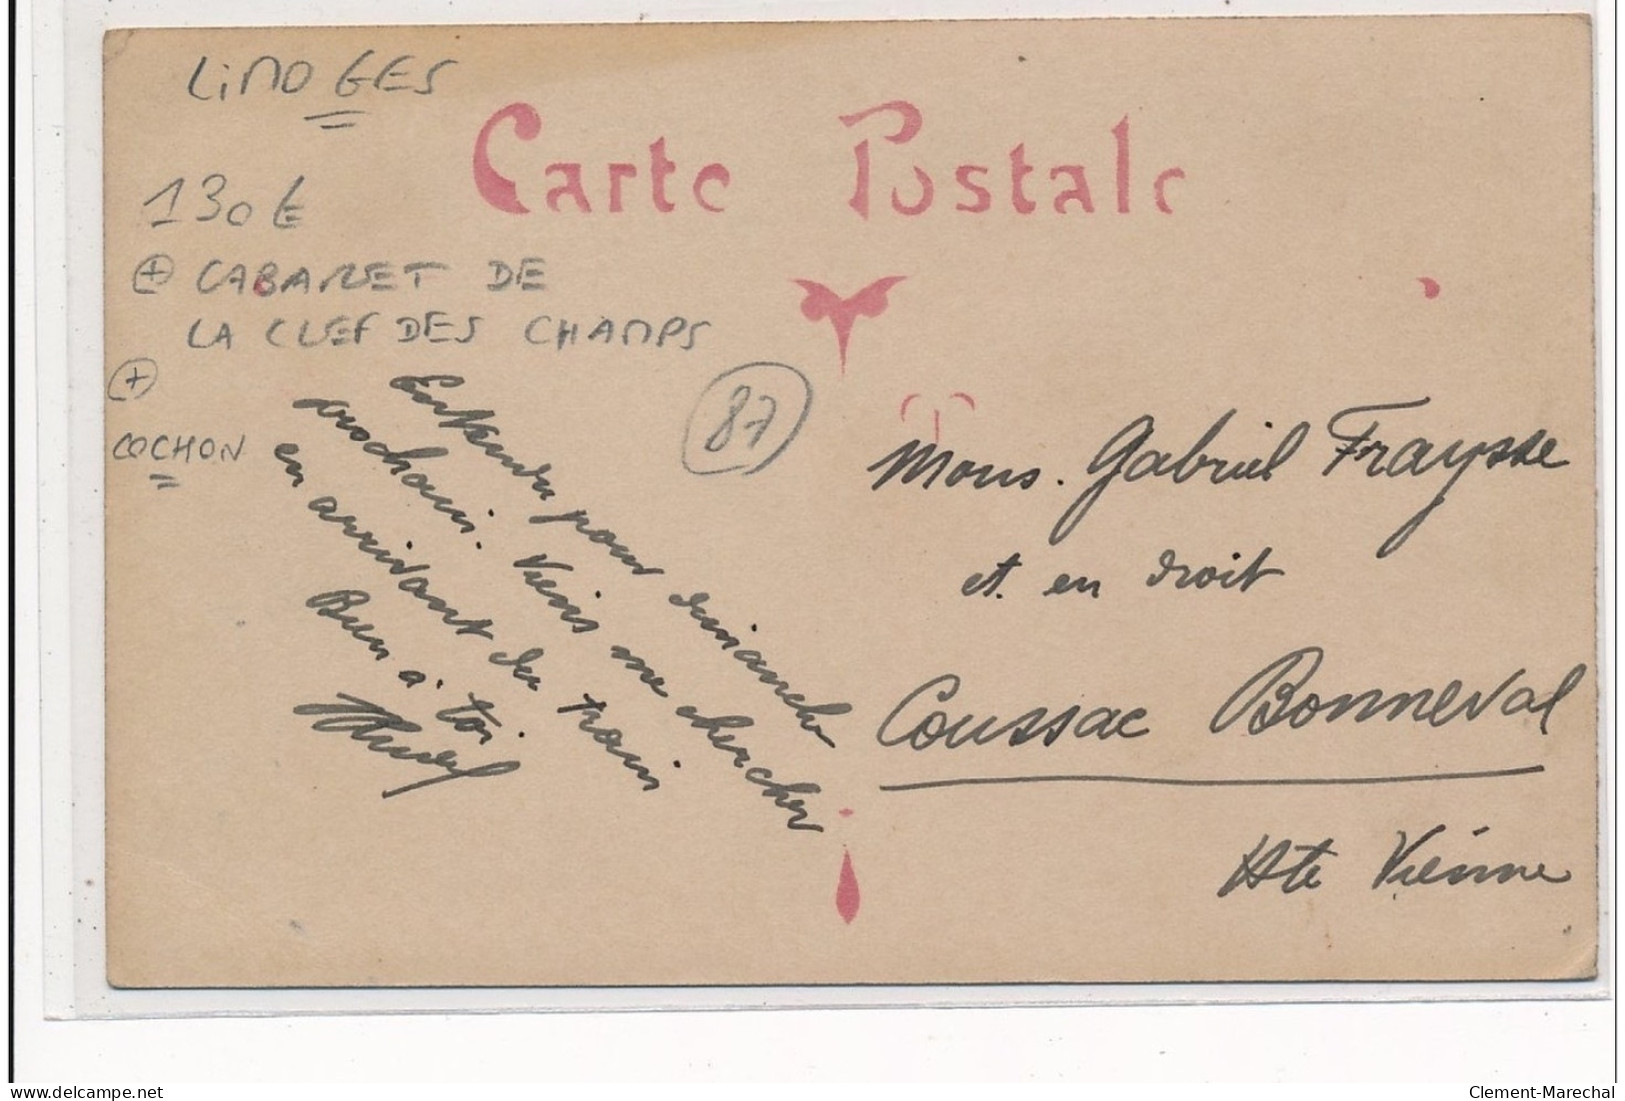 LIMOGES
130€
Carte Postale
+ CABARET DE
LA CLEF DES CHAMPS
+
COCHON
87
Entendu pour dimanche
prochain. Viens me chercher
en arrivant du train
Bien à toi.
Mons. Gabriel Fraysse
et. en droit
Coussac Bonneval
Hte Vienne
delcampe.net
Clement-Marechal